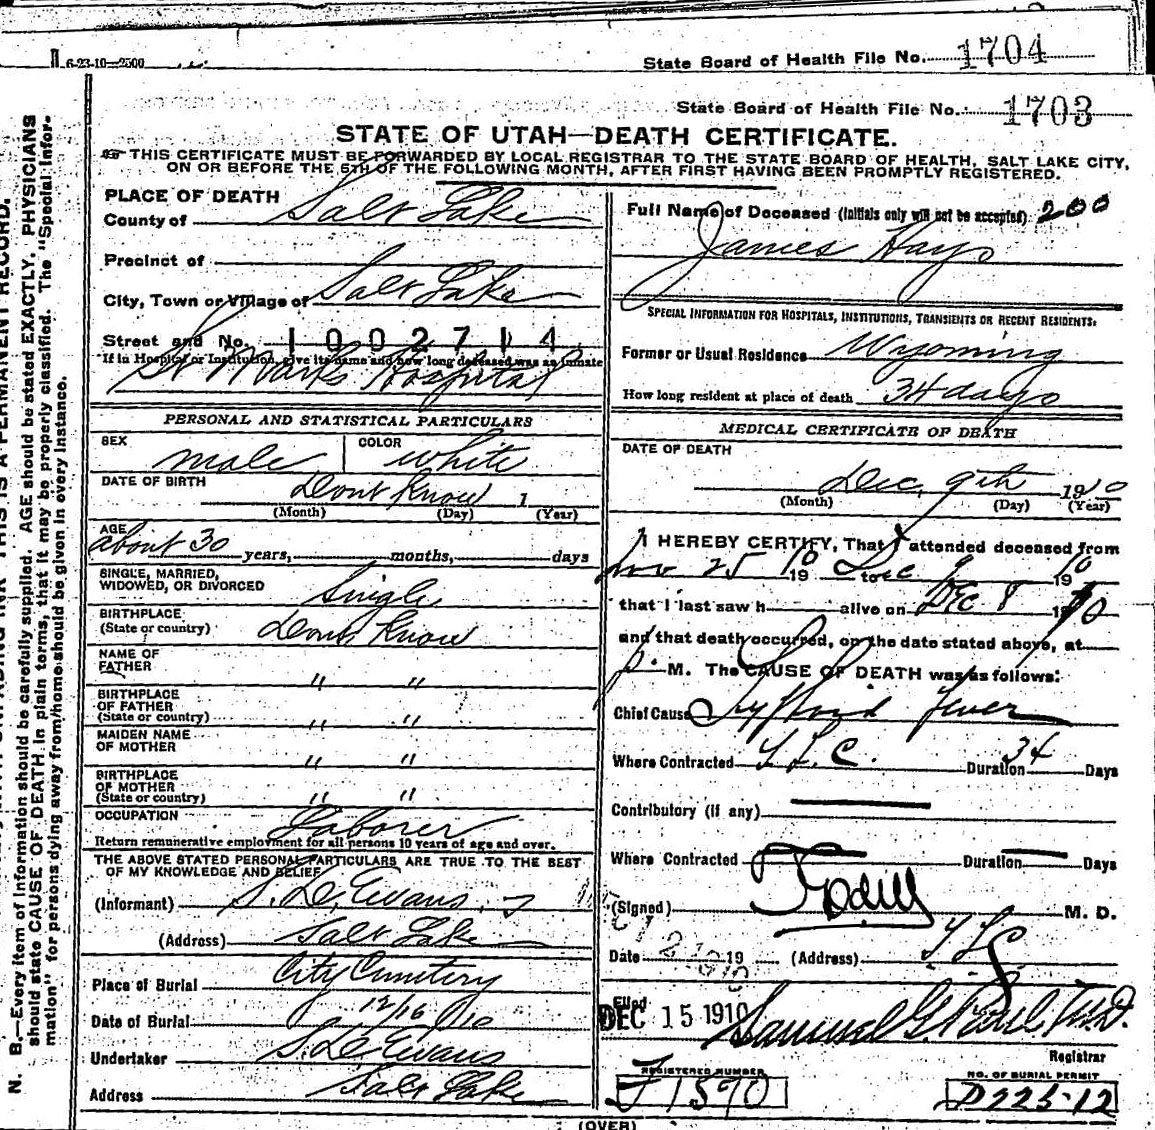 6-23-10—2500
State Board of Health File No. 1704
State Board of Health File No. 1703
STATE OF UTAH—DEATH CERTIFICATE.
THIS CERTIFICATE MUST BE FORWARDED BY LOCAL REGISTRAR TO THE STATE BOARD OF HEALTH, SALT LAKE CITY,
ON OR BEFORE THE 5TH OF THE FOLLOWING MONTH, AFTER FIRST HAVING BEEN PROMPTLY REGISTERED.
N. B.—Every item of Information should be carefully supplied. AGE should be stated EXACTLY. PHYSICIANS
should state CAUSE OF DEATH in plain terms, that it may be properly classified. The "Special Infor-
mation" for persons dying away from home should be given in every instance.
THIS IS A PERMANENT RECORD.
PLACE OF DEATH
County of Salt Lake
Precinct of
City, Town or Village of Salt Lake
Street and No. 1002714
If in Hospital or Institution, give its name and how long deceased was an inmate
St Marks Hospital
PERSONAL AND STATISTICAL PARTICULARS
SEX male COLOR white
DATE OF BIRTH Dont Know 1
(Month) (Day) (Year)
AGE
about 30 years, months, days
SINGLE, MARRIED,
WIDOWED, OR DIVORCED Single
BIRTHPLACE
(State or country) Dont Know
NAME OF
FATHER " "
BIRTHPLACE
OF FATHER
(State or country) " "
MAIDEN NAME
OF MOTHER " "
BIRTHPLACE
OF MOTHER
(State or country) " "
OCCUPATION Laborer
Return remunerative employment for all persons 10 years of age and over.
THE ABOVE STATED PERSONAL PARTICULARS ARE TRUE TO THE BEST
OF MY KNOWLEDGE AND BELIEF
(Informant) S. D. Evans
(Address) Salt Lake
Place of Burial City Cemetery
Date of Burial 12/16/10
Undertaker S. D. Evans
Address Salt Lake
Full Name of Deceased (Initials only will not be accepted) 200
James Hays
SPECIAL INFORMATION FOR HOSPITALS, INSTITUTIONS, TRANSIENTS OR RECENT RESIDENTS:
Former or Usual Residence Wyoming
How long resident at place of death 34 days
MEDICAL CERTIFICATE OF DEATH
DATE OF DEATH
Dec, 9th 1910
(Month) (Day) (Year)
I HEREBY CERTIFY, That I attended deceased from
Nov 25 1910 to Dec 9 1910
that I last saw h alive on Dec 8 1910
and that death occurred, on the date stated above, at
p. M. The CAUSE OF DEATH was as follows:
Chief Cause Typhoid Fever
Where Contracted Duration 34 Days
Contributory (if any)
Where Contracted Duration Days
(Signed) M. D.
Date 19 (Address)
Filed
DEC 15 1910 Samuel G. Paul, M.D.
Registrar
REGISTERED NUMBER
J 1590
NO. OF BURIAL PERMIT
D225-12
(OVER)